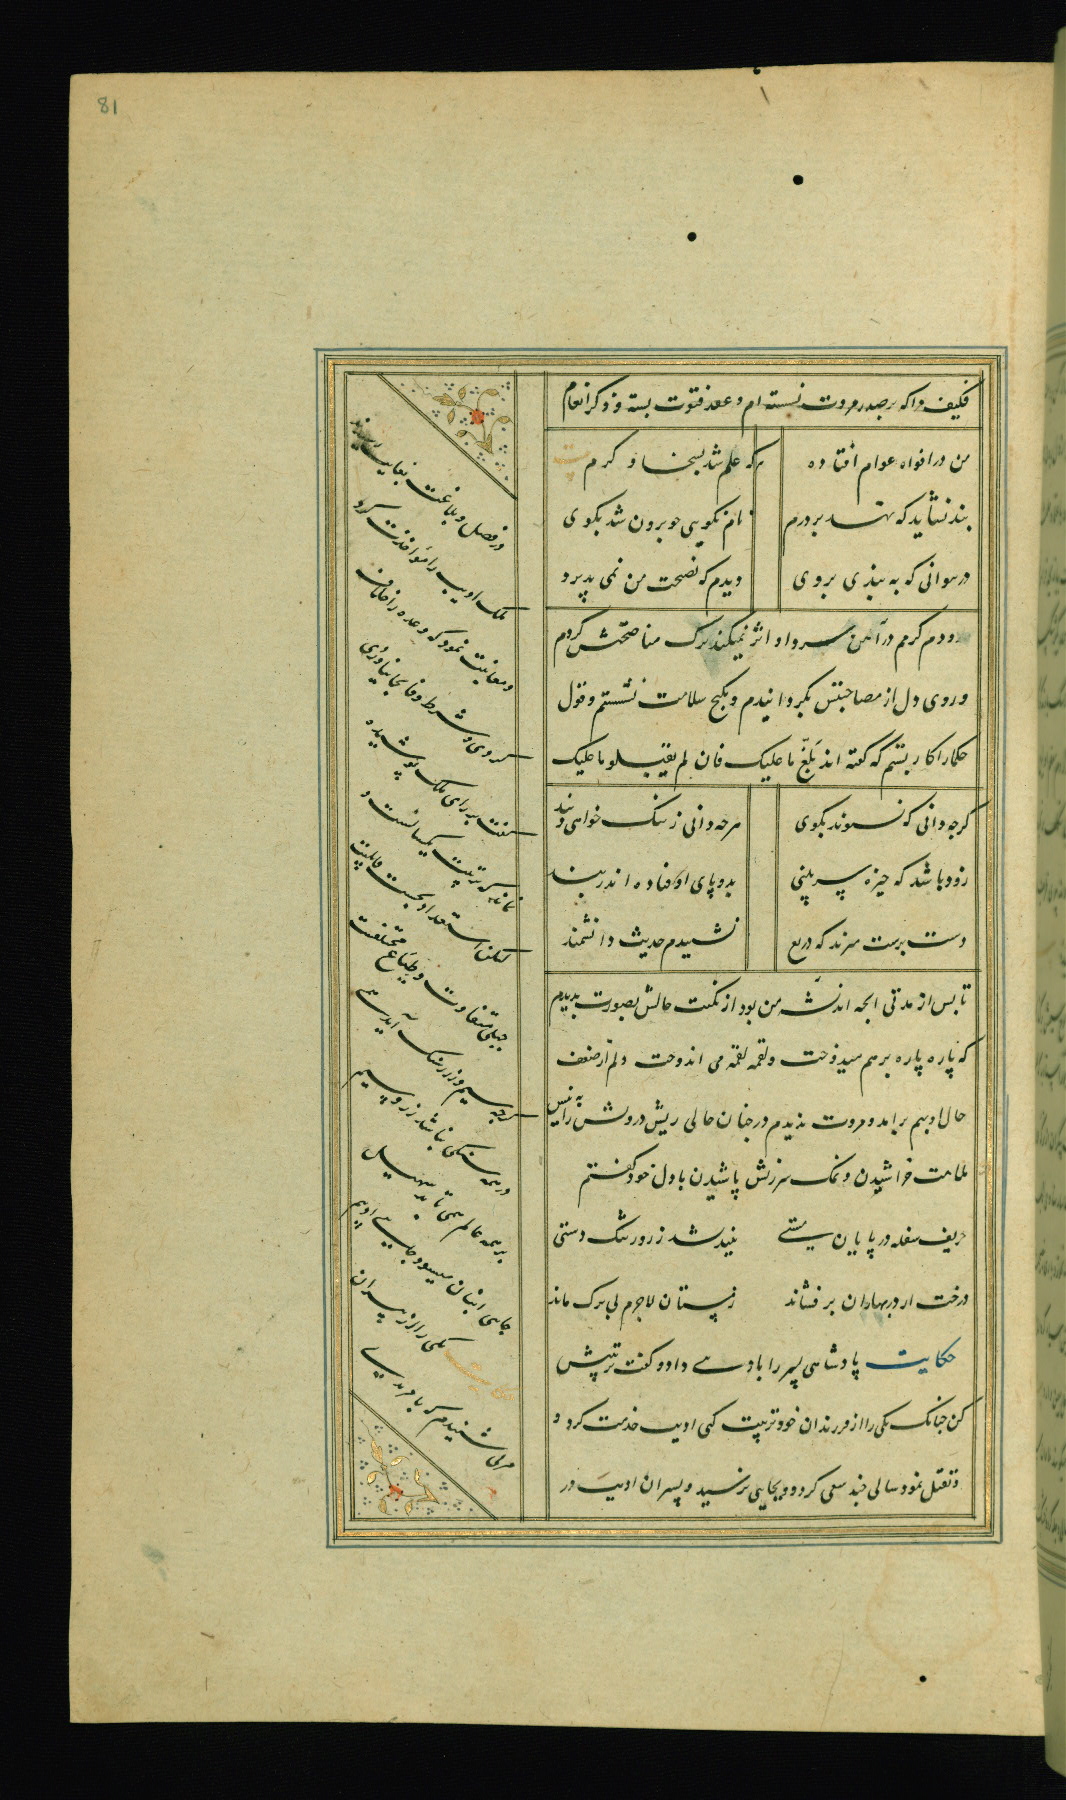 81
فکیف مرا که بر صدر مروت نشسته ام و عقد فتوت بسته و ذکر انعام
من در افواه عوام افتاده
هر که علم شد بسخا و کرم
بند نشاید که نهد بر درم
نام نکویی چو برون شد بکوی
در نتوانی که به بندی بروی
دیدم که نصیحت من نمی پذیرد
و دم گرم من در آهن سرد او اثر نمیکند ترک مناصحتش کردم
و روی دل از مصاحبتش بگردانیدم و بکنج سلامت نشستم و قول
حکما را کار بستم که گفته اند بَلِّغ ما علیک فان لم یقبلو ما علیک
گرچه دانی که نشنوند بگوی
هرچه دانی ز نیک خواهی و پند
زود باشد که خیره سر بینی
بدو پای اوفتاده اندر بند
دست بر دست میزند که دریغ
نشنیدم حدیث دانشمند
تا پس از مدتی آنچه اندیشه من بود از نکبت حالش بصورت بدیدم
که پاره پاره بر هم میدوخت و لقمه لقمه می اندوخت دلم از ضعف
حال او بهم برامد و مروت ندیدم در چنان حالی ریش درویش را به نیش
ملامت خراشیدن و نمک سرزنش پاشیدن با دل خود گفتم
حریف سفله در پایان مستی
نیندیشد ز روز تنگ دستی
درخت اندر بهاران بر فشاند
زمستان لاجرم بی برک ماند
حکایت پادشاهی پسر را بادیبی داد و گفت تربیتش
کن چنانک یکی را از فرزندان خود تربیت کنی ادیب خدمت کرد و
متقبل نمود سالی چند سعی کرد و بجایی نرسید و پسران ادیب در
در فضل و بلاغت بغایت رسیدند
ملک ادیب را مواخذت کرد
و معاتبت نمود که وعده را خلاف
کردی و شرط وفا بجا نیاوردی
گفت بر رای ملک پوشیده
نماند که تربیت یکسانست و
لیکن استعداد بحسب قابلیت
جبلی متفاوت و طباع مختلفست
گرچه سیم و زر ز سنگ آید همی
در همه سنگی نباشد زر و سیم
بر همه عالم همی تابد سهیل
جایی انبان میشود جایی ادیم
حکایت یکی را از پیران
مربی شنیدم که با مریدی